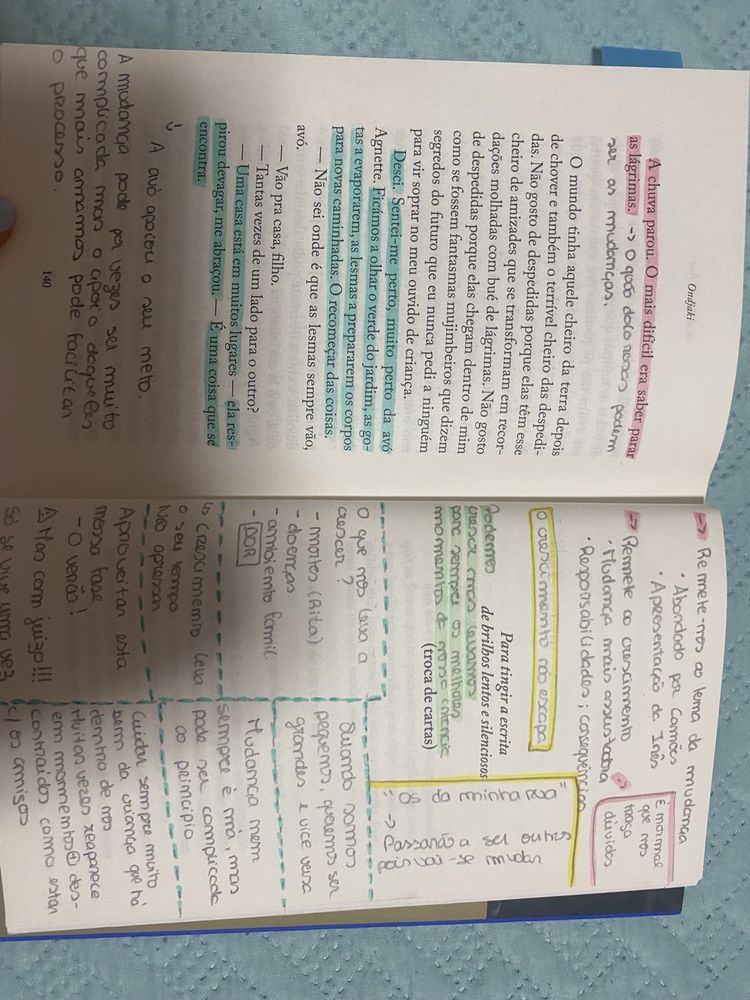 Ondjaki
A chuva parou. O mais difícil era saber parar
as lágrimas. → O quão dolorosas podem
ser as mudanças.
O mundo tinha aquele cheiro da terra depois
de chover e também o terrível cheiro das despedi-
das. Não gosto de despedidas porque elas têm esse
cheiro de amizades que se transformam em recor-
dações molhadas com bué de lágrimas. Não gosto
de despedidas porque elas chegam dentro de mim
como se fossem fantasmas mujimbeiros que dizem
segredos do futuro que eu nunca pedi a ninguém
para vir soprar no meu ouvido de criança.
Desci. Sentei-me perto, muito perto da avó
Agnette. Ficámos a olhar o verde do jardim, as go-
tas a evaporarem, as lesmas a prepararem os corpos
para novas caminhadas. O recomeçar das coisas.
— Não sei onde é que as lesmas sempre vão,
avó.
— Vão pra casa, filho.
— Tantas vezes de um lado para o outro?
— Uma casa está em muitos lugares — ela res-
pirou devagar, me abraçou. — É uma coisa que se
encontra.
↓ A avó apoiou o seu neto.
A mudança pode por vezes ser muito
complicada mas o apoio daqueles
que mais amamos pode facilitar
o processo.
140
→ Remete-nos ao tema da mudança
• Abordado por Camões
• Apresentação da Inês
→ Remete ao crescimento
• Mudança mais assustadora →
• Responsabilidades; consequências
É normal
que nos
traga
dúvidas
O crescimento não escapa
Para tingir a escrita
de brilhos lentos e silenciosos
(troca de cartas)
Podemos
crescer mas levamos
para sempre os melhores
momentos da nossa infância
"Os da minha rua"
→ Passarão a ser outros
pois vai-se mudar
O que nos leva a
crescer?
- mortes (Rita)
- doenças
- ambiente famil.
- DOR
↳ Crescimento leva
o seu tempo
Não apressar
Aproveitar esta
nossa fase
- O verão!
⚠ Mas com juízo!!!
Só se vive uma vez
Quando somos
pequenos queremos ser
grandes e vice versa
Mudança nem
sempre é má, mas
pode ser complicada
ao princípio
Cuidar sempre muito
bem da criança que há
dentro de nós
Muitas vezes reaparece
em momentos ⊕ des-
contraídos como estar
c/ os amigos